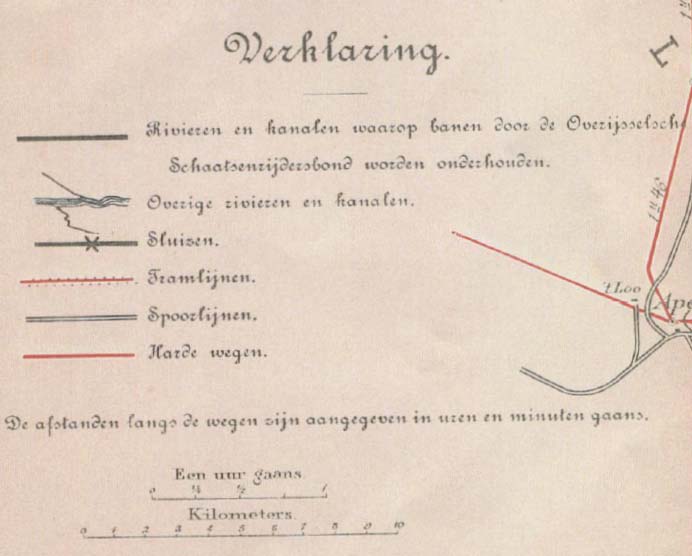 Verklaring.
Rivieren en kanalen waarop banen door de Overijselsche
Schaatsenrijdersbond worden onderhouden.
Overige rivieren en kanalen.
Sluizen.
Tramlijnen.
Spoorlijnen.
Harde wegen.
De afstanden langs de wegen zijn aangegeven in uren en minuten gaans.
Een uur gaans.
0 ¼ ½ 1
Kilometers.
0 1 2 3 4 5 6 7 8 9 10
L
't Loo
Ape